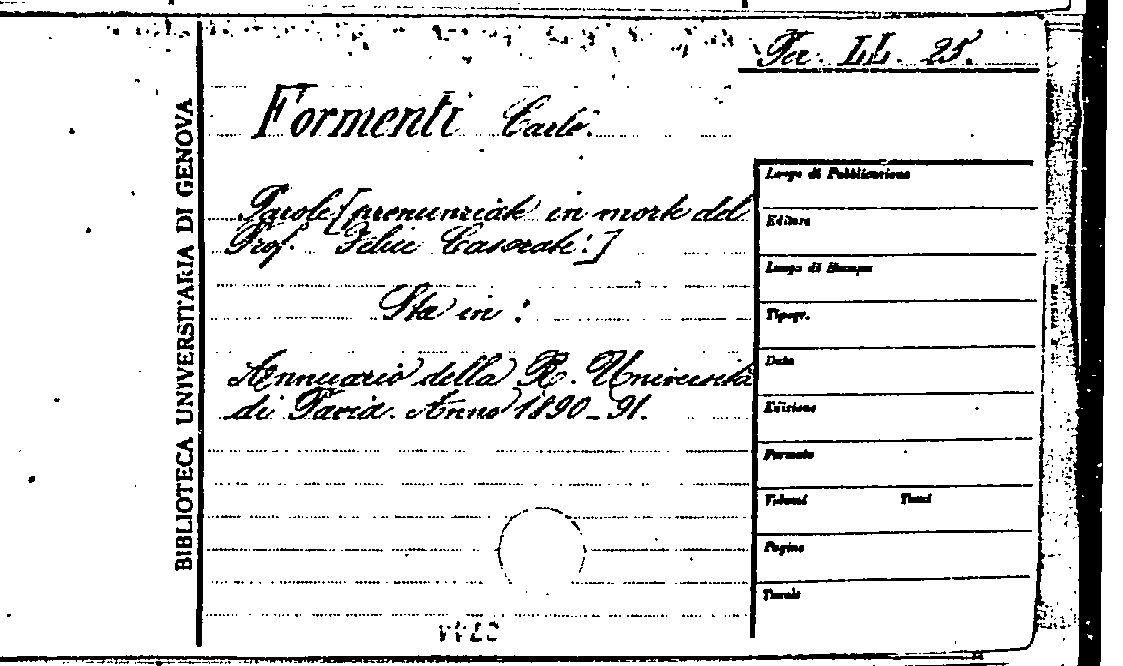 BIBLIOTECA UNIVERSITARIA DI GENOVA
Per. LL. 25.
Formenti Carlo.
Parole [pronunziate in morte del
Prof. Felice Casorati:]
Sta in:
Annuario della R. Università
di Pavia. Anno 1890-91.
Luogo di Pubblicazione
Editore
Luogo di Stampa
Tipogr.
Data
Edizione
Formato
Volumi Tomi
Pagine
Tavole